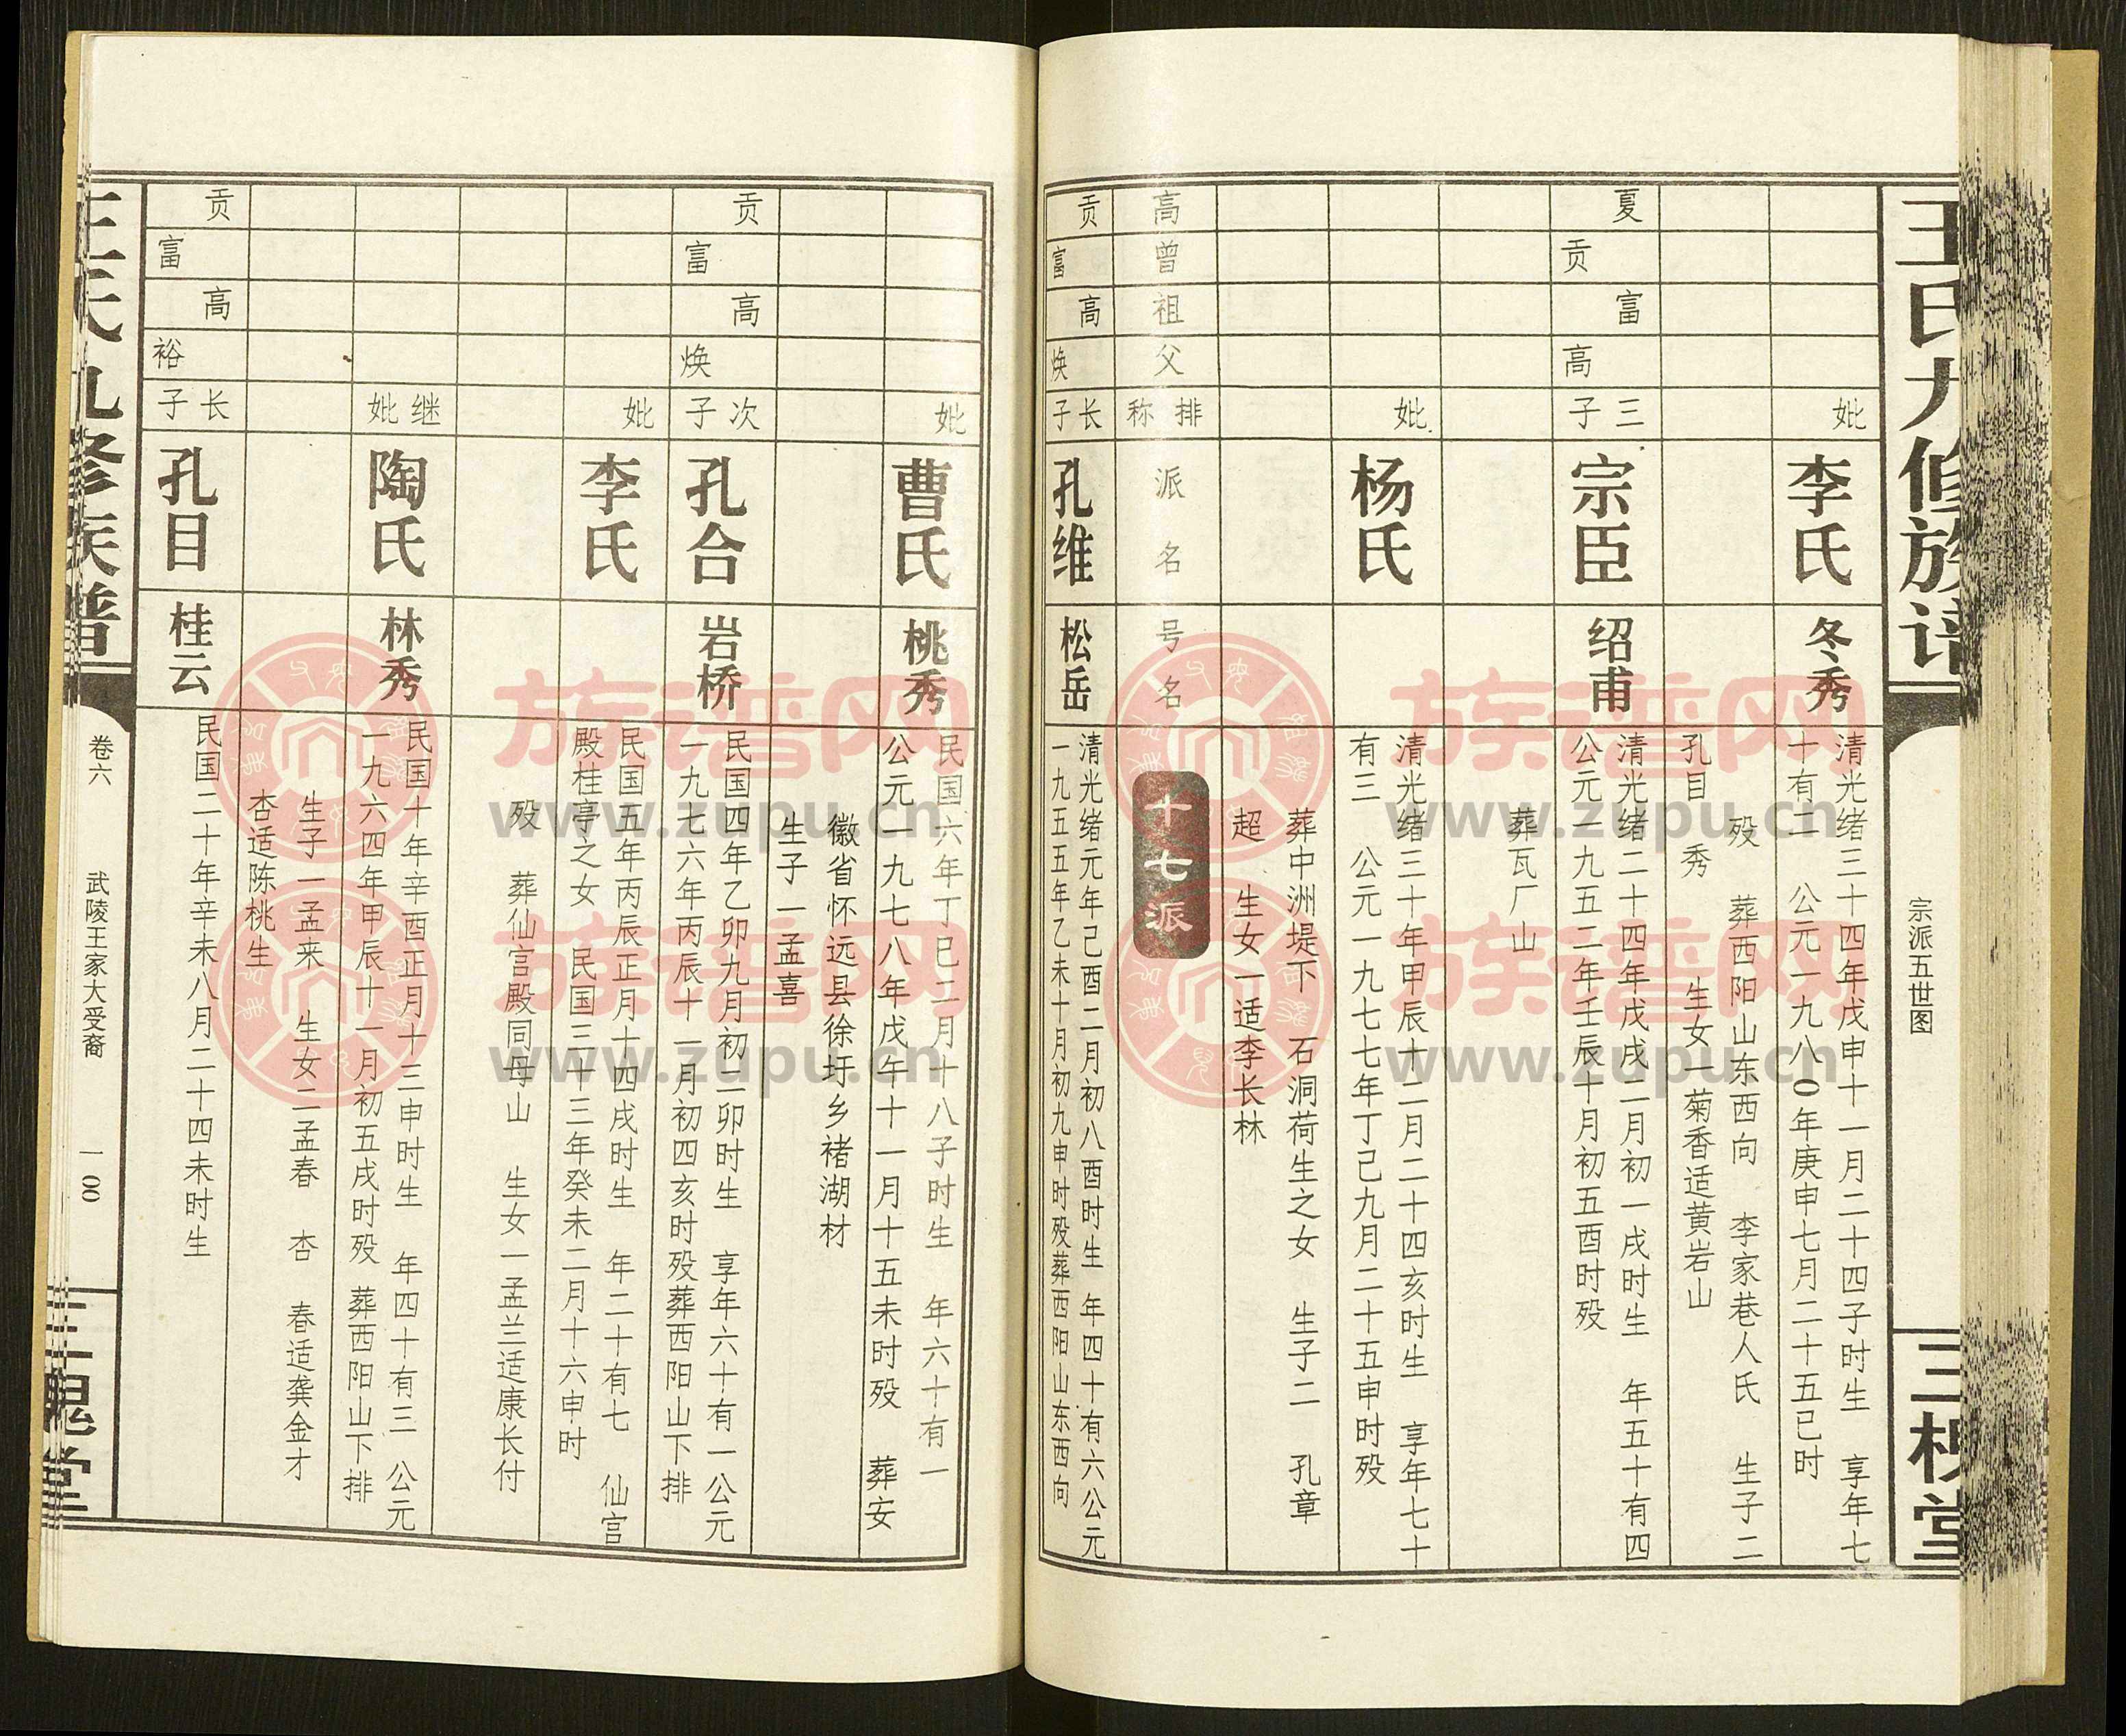 王氏九修族谱
宗派五世图
三槐堂
妣
李氏
冬秀
清光绪三十四年戊申十一月二十四子时生 享年七
十有二 公元一九八〇年庚申七月二十五巳时
殁 葬西阳山东西向 李家巷人氏 生子二
孔目 秀 生女一菊香适黄岩山
夏
贡
富
高
三子
宗臣
绍甫
清光绪二十四年戊戌二月初一戌时生 年五十有四
公元一九五二年壬辰十月初五酉时殁
葬瓦厂山
妣
杨氏
清光绪三十年甲辰十二月二十四亥时生 享年七十
有三 公元一九七七年丁己九月二十五申时殁
葬中洲堤下 石洞荷生之女 生子二 孔章
超 生女一适李长林
高
曾
祖
父
排称
派名
号名
十七派
贡
富
高
焕
长子
孔维
松岳
清光绪元年己酉二月初八酉时生 年四十有六公元
一九五五年乙未十月初九申时殁葬西阳山东西向
妣
曹氏
桃秀
民国六年丁巳二月十八子时生 年六十有一
公元一九七八年戊午十一月十五未时殁 葬安
徽省怀远县徐圩乡褚湖材
生子一孟喜
贡
富
高
焕
次子
孔合
岩桥
民国四年乙卯九月初二卯时生 享年六十有一公元
一九七六年丙辰十一月初四亥时殁葬西阳山下排
妣
李氏
民国五年丙辰正月十四戌时生 年二十有七 仙宫
殿桂亭之女 民国三十三年癸未二月十六申时
殁 葬仙宫殿同母山 生女一孟兰适康长付
继妣
陶氏
林秀
民国十年辛酉正月十三申时生 年四十有三 公元
一九六四年甲辰十一月初五戌时殁 葬西阳山下排
生子一孟来 生女二孟春 杏 春适龚金才
杏适陈桃生
贡
富
高
裕
长子
孔目
桂云
民国二十年辛未八月二十四未时生
王氏九修族谱
卷六
武陵王家大受裔
一〇〇
三槐堂
族谱网
www.zupu.cn
族谱网
www.zupu.cn
族谱网
www.zupu.cn
族谱网
www.zupu.cn